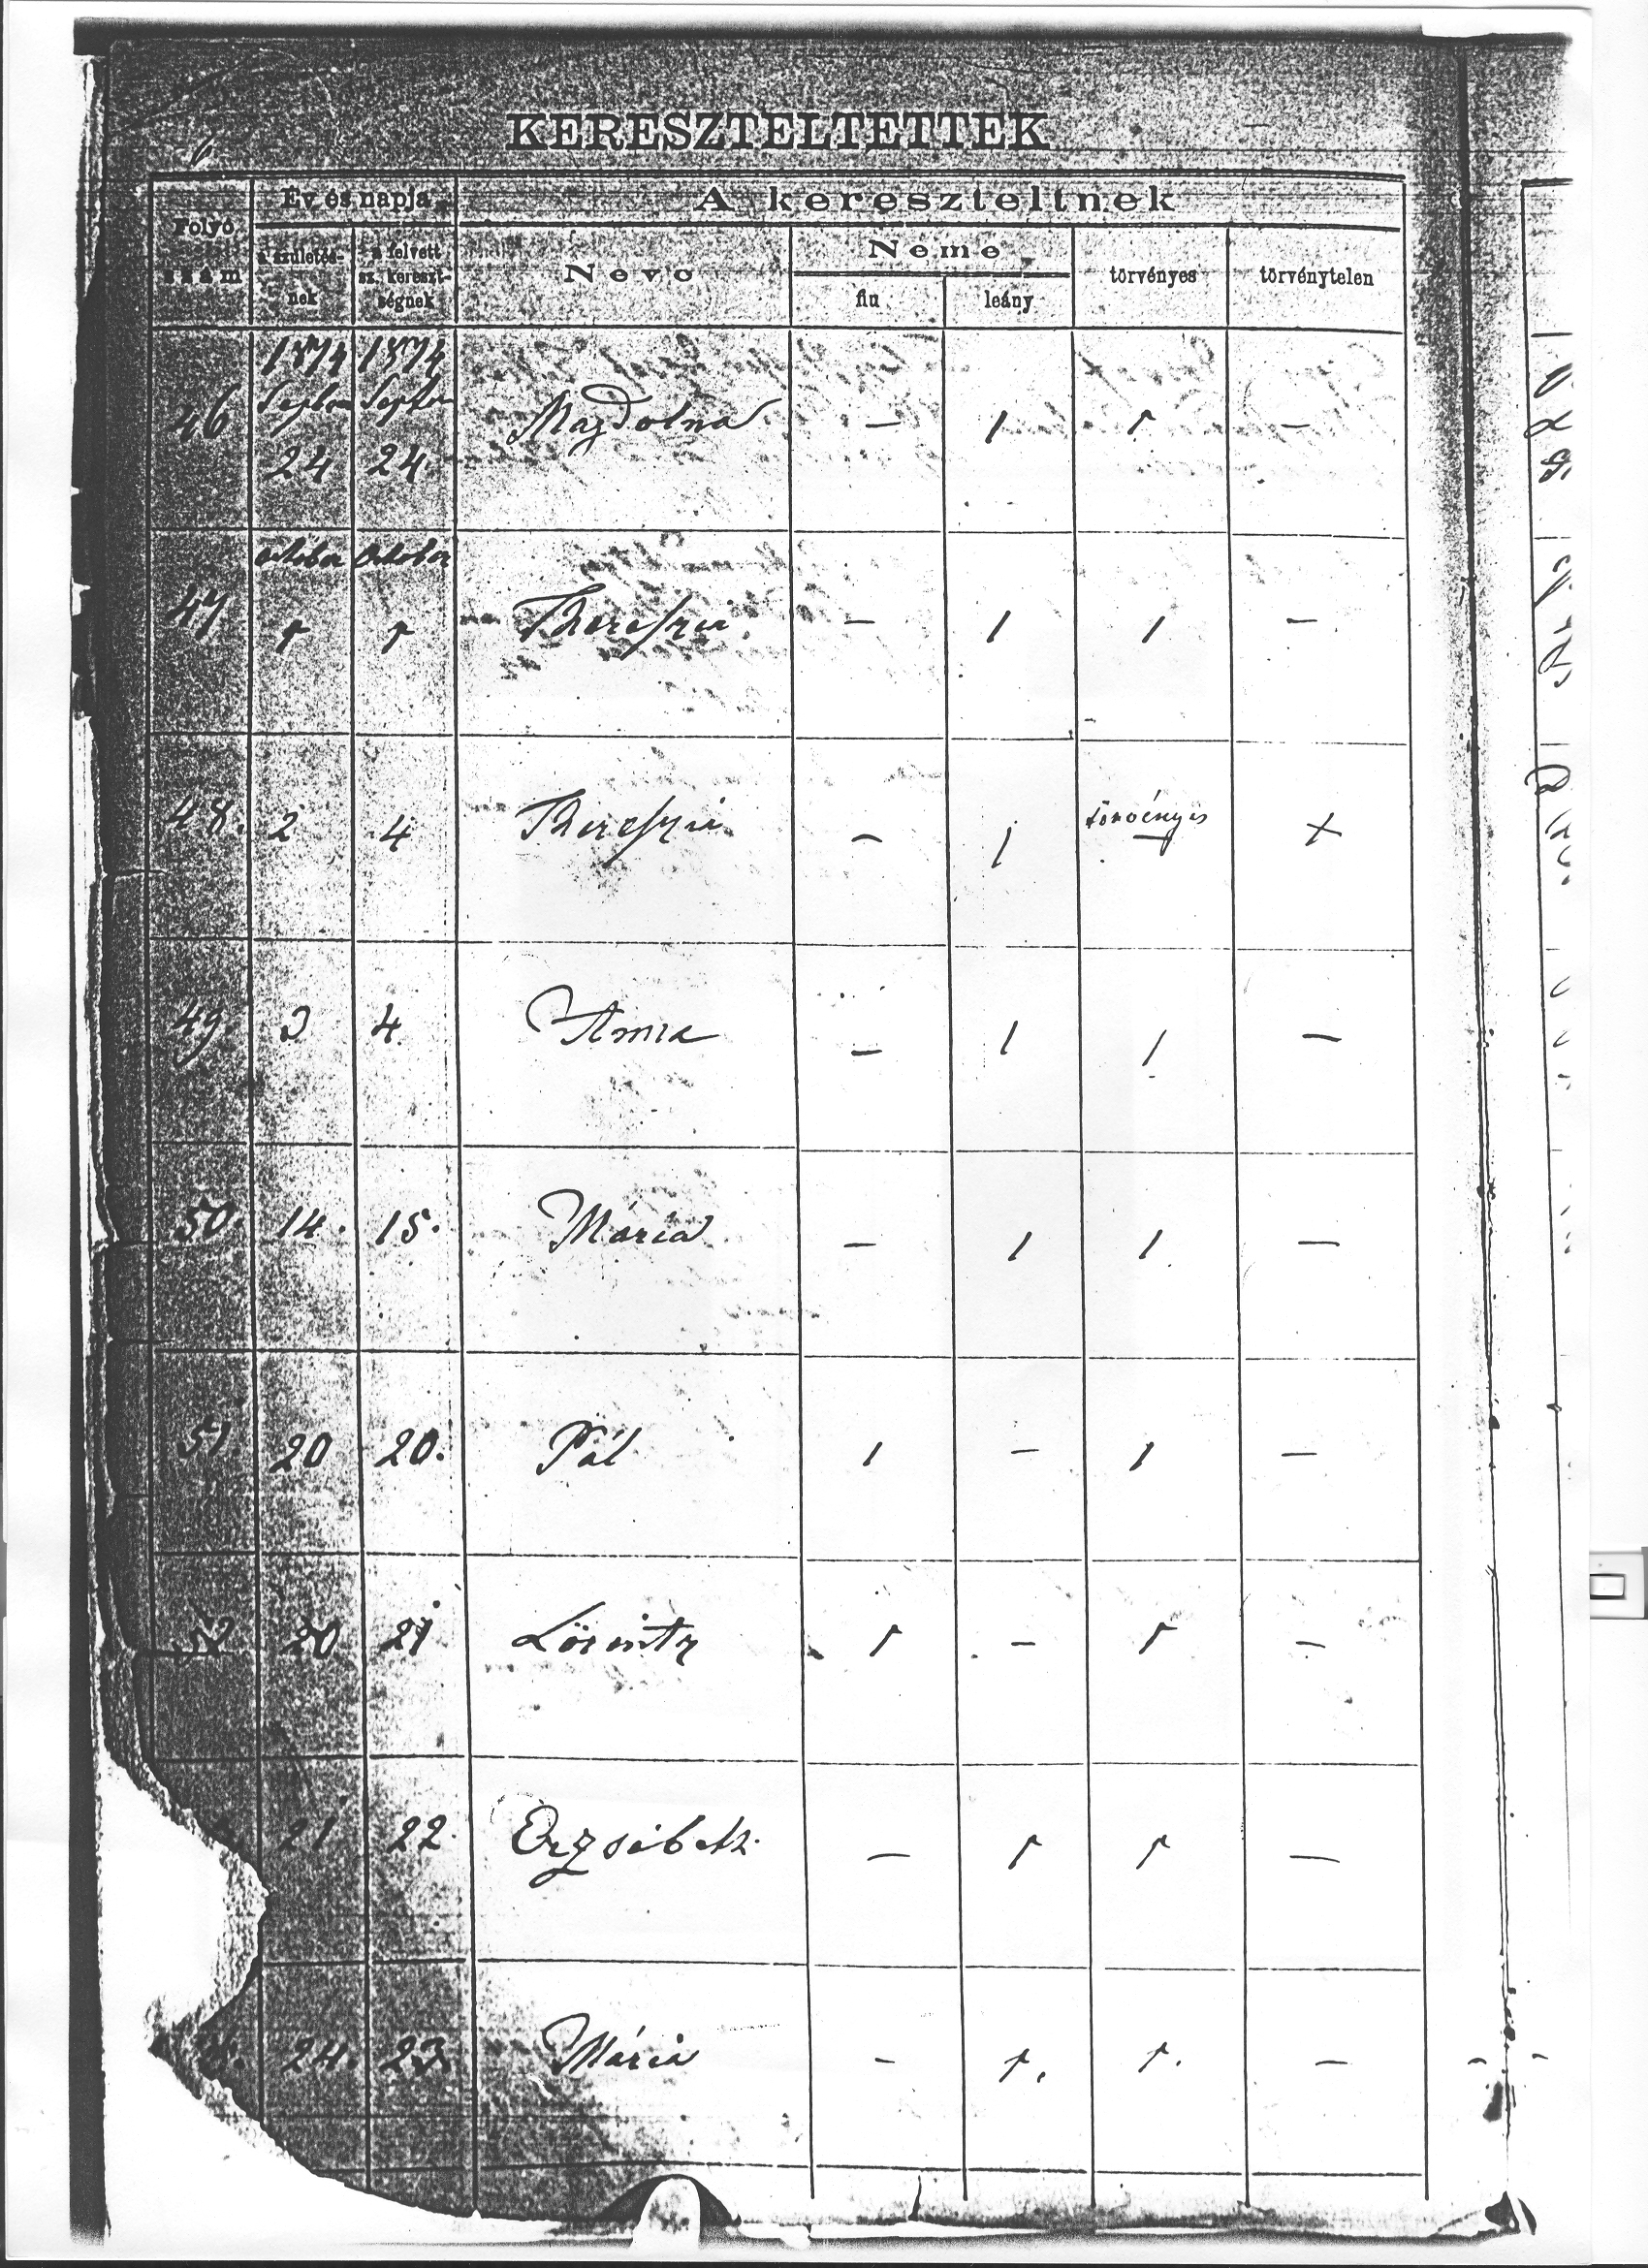 KERESZTELTETTEK
Folyó szám
Év és napja
a születés-
nek
a felvett
sz. kereszt-
ségnek
A kereszteltnek
Neve
Neme
fiu
leány
törvényes
törvénytelen
1874 1874
Septem Septem
46 24 24 Magdolna — 1 1 —
October October
47 1 1 Thereszia — 1 1 —
48. 2 4 Thereszia — 1 törvényes — +
49. 3 4. Anna — 1 1 —
50. 14. 15. Mária — 1 1 —
51. 20 20. Pál 1 — 1 —
52 20 21 Lörintz 1 — 1 —
21 22. Erzsébeth. — 1 1 —
24. 23. Mária — 1. 1. —